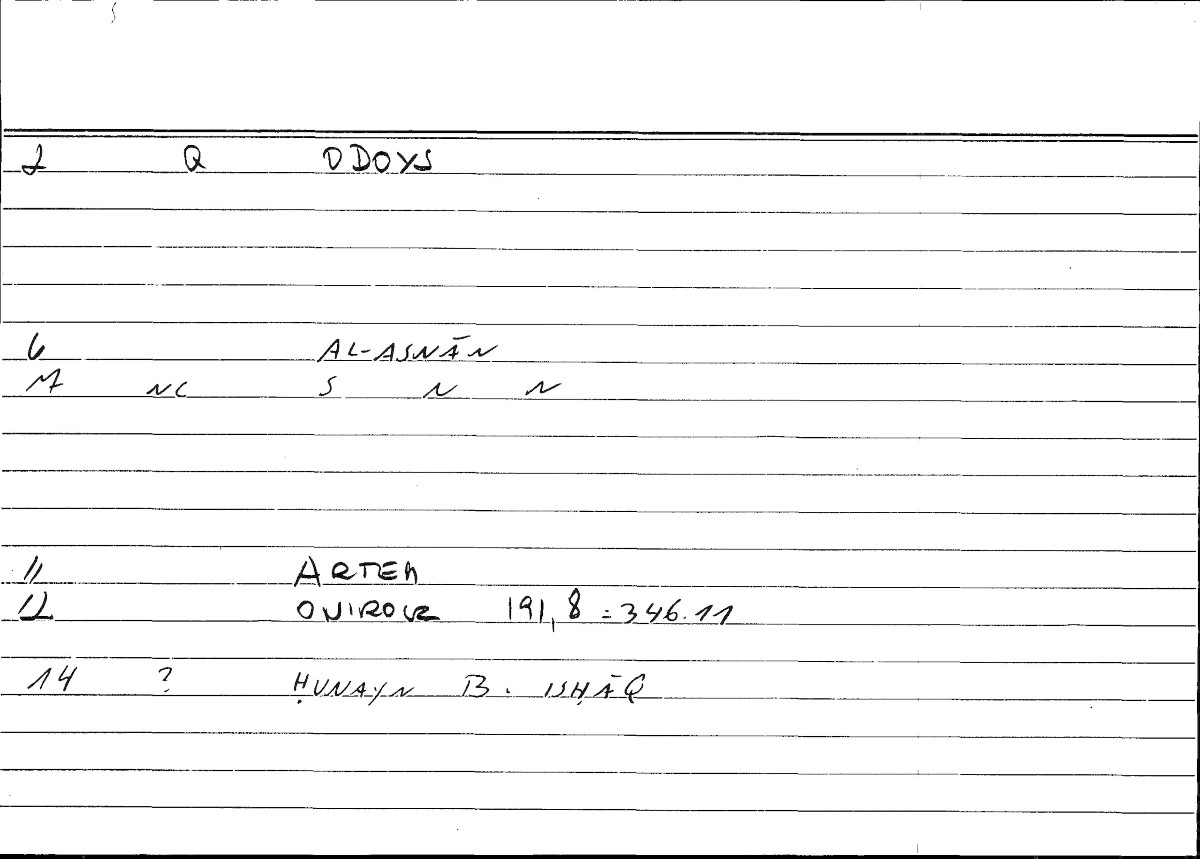 2 Q ODOYS
6 AL-ASNĀN
7 NC S N N
11 ARTEM
12 ONIROCR 191,8 = 346.11
14 ? ḤUNAYN B. ISḤĀQ